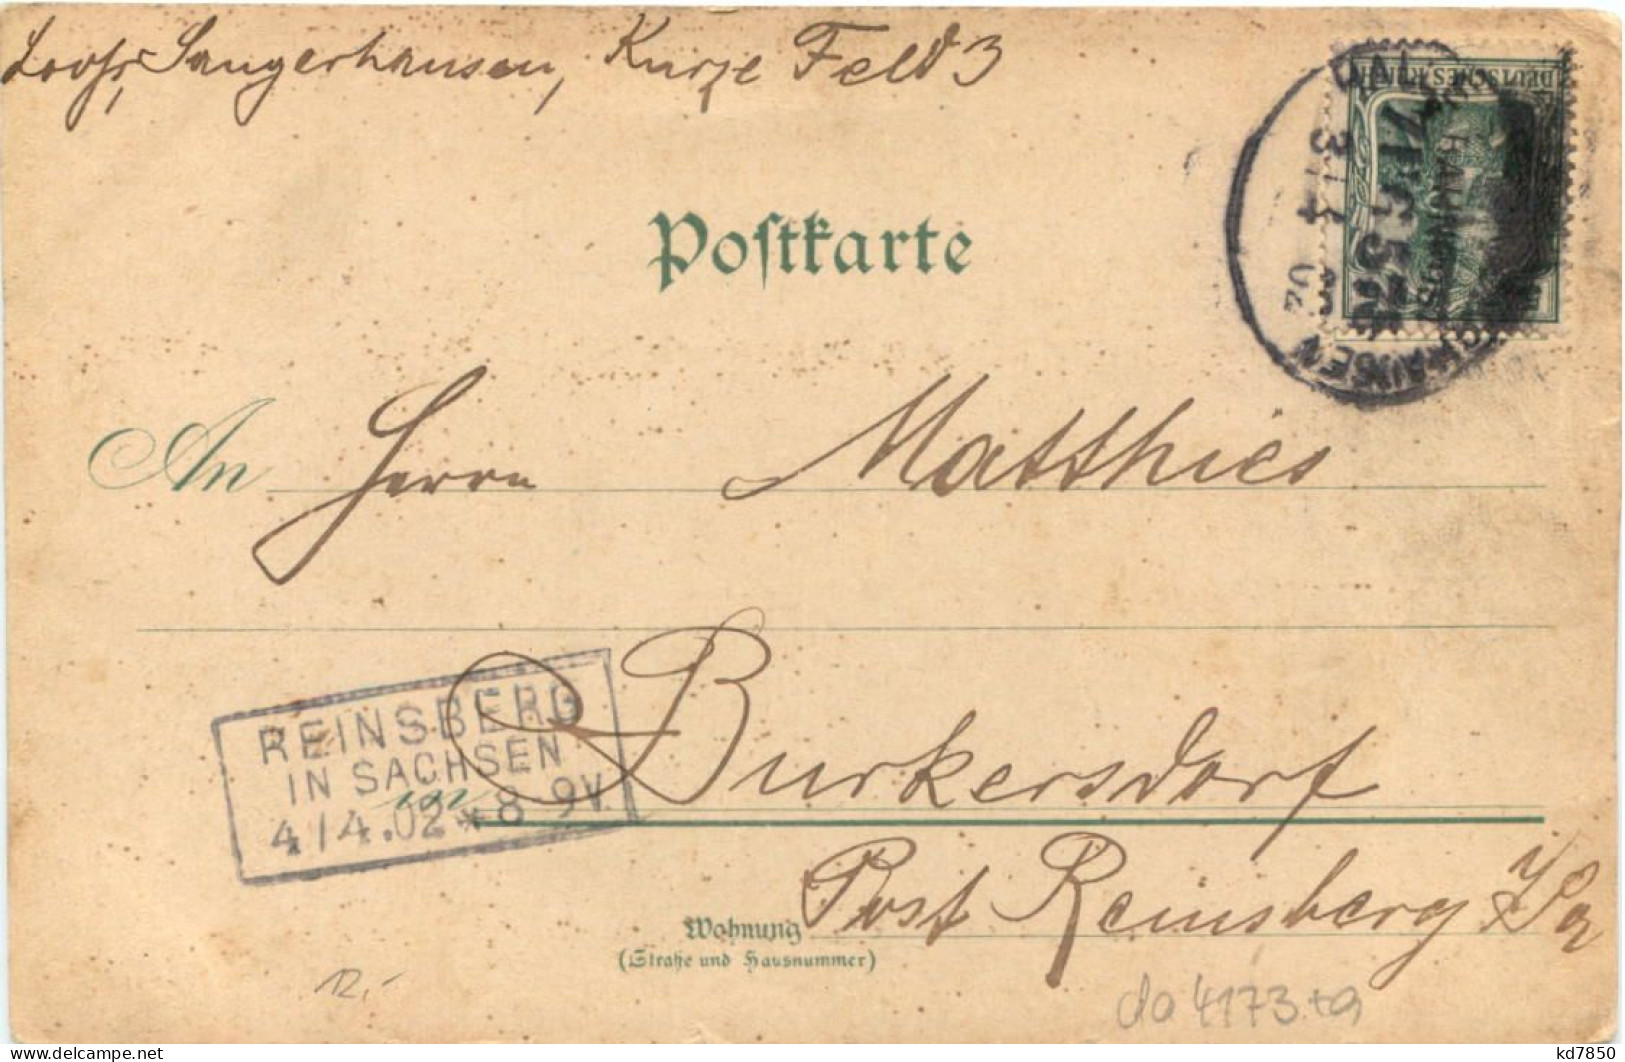 Loohs, Sangerhausen, Kurze Feld 3
DEUTSCHES REICH
3 4 02
Postkarte
An Herrn Matthies
Burkersdorf
REINSBERG
IN SACHSEN
4/4.02*8 9V.
in
Post Reinsberg
Wohnung
(Straße und Hausnummer)
12,-
da 4173.+a
delcampe.net
kd7850